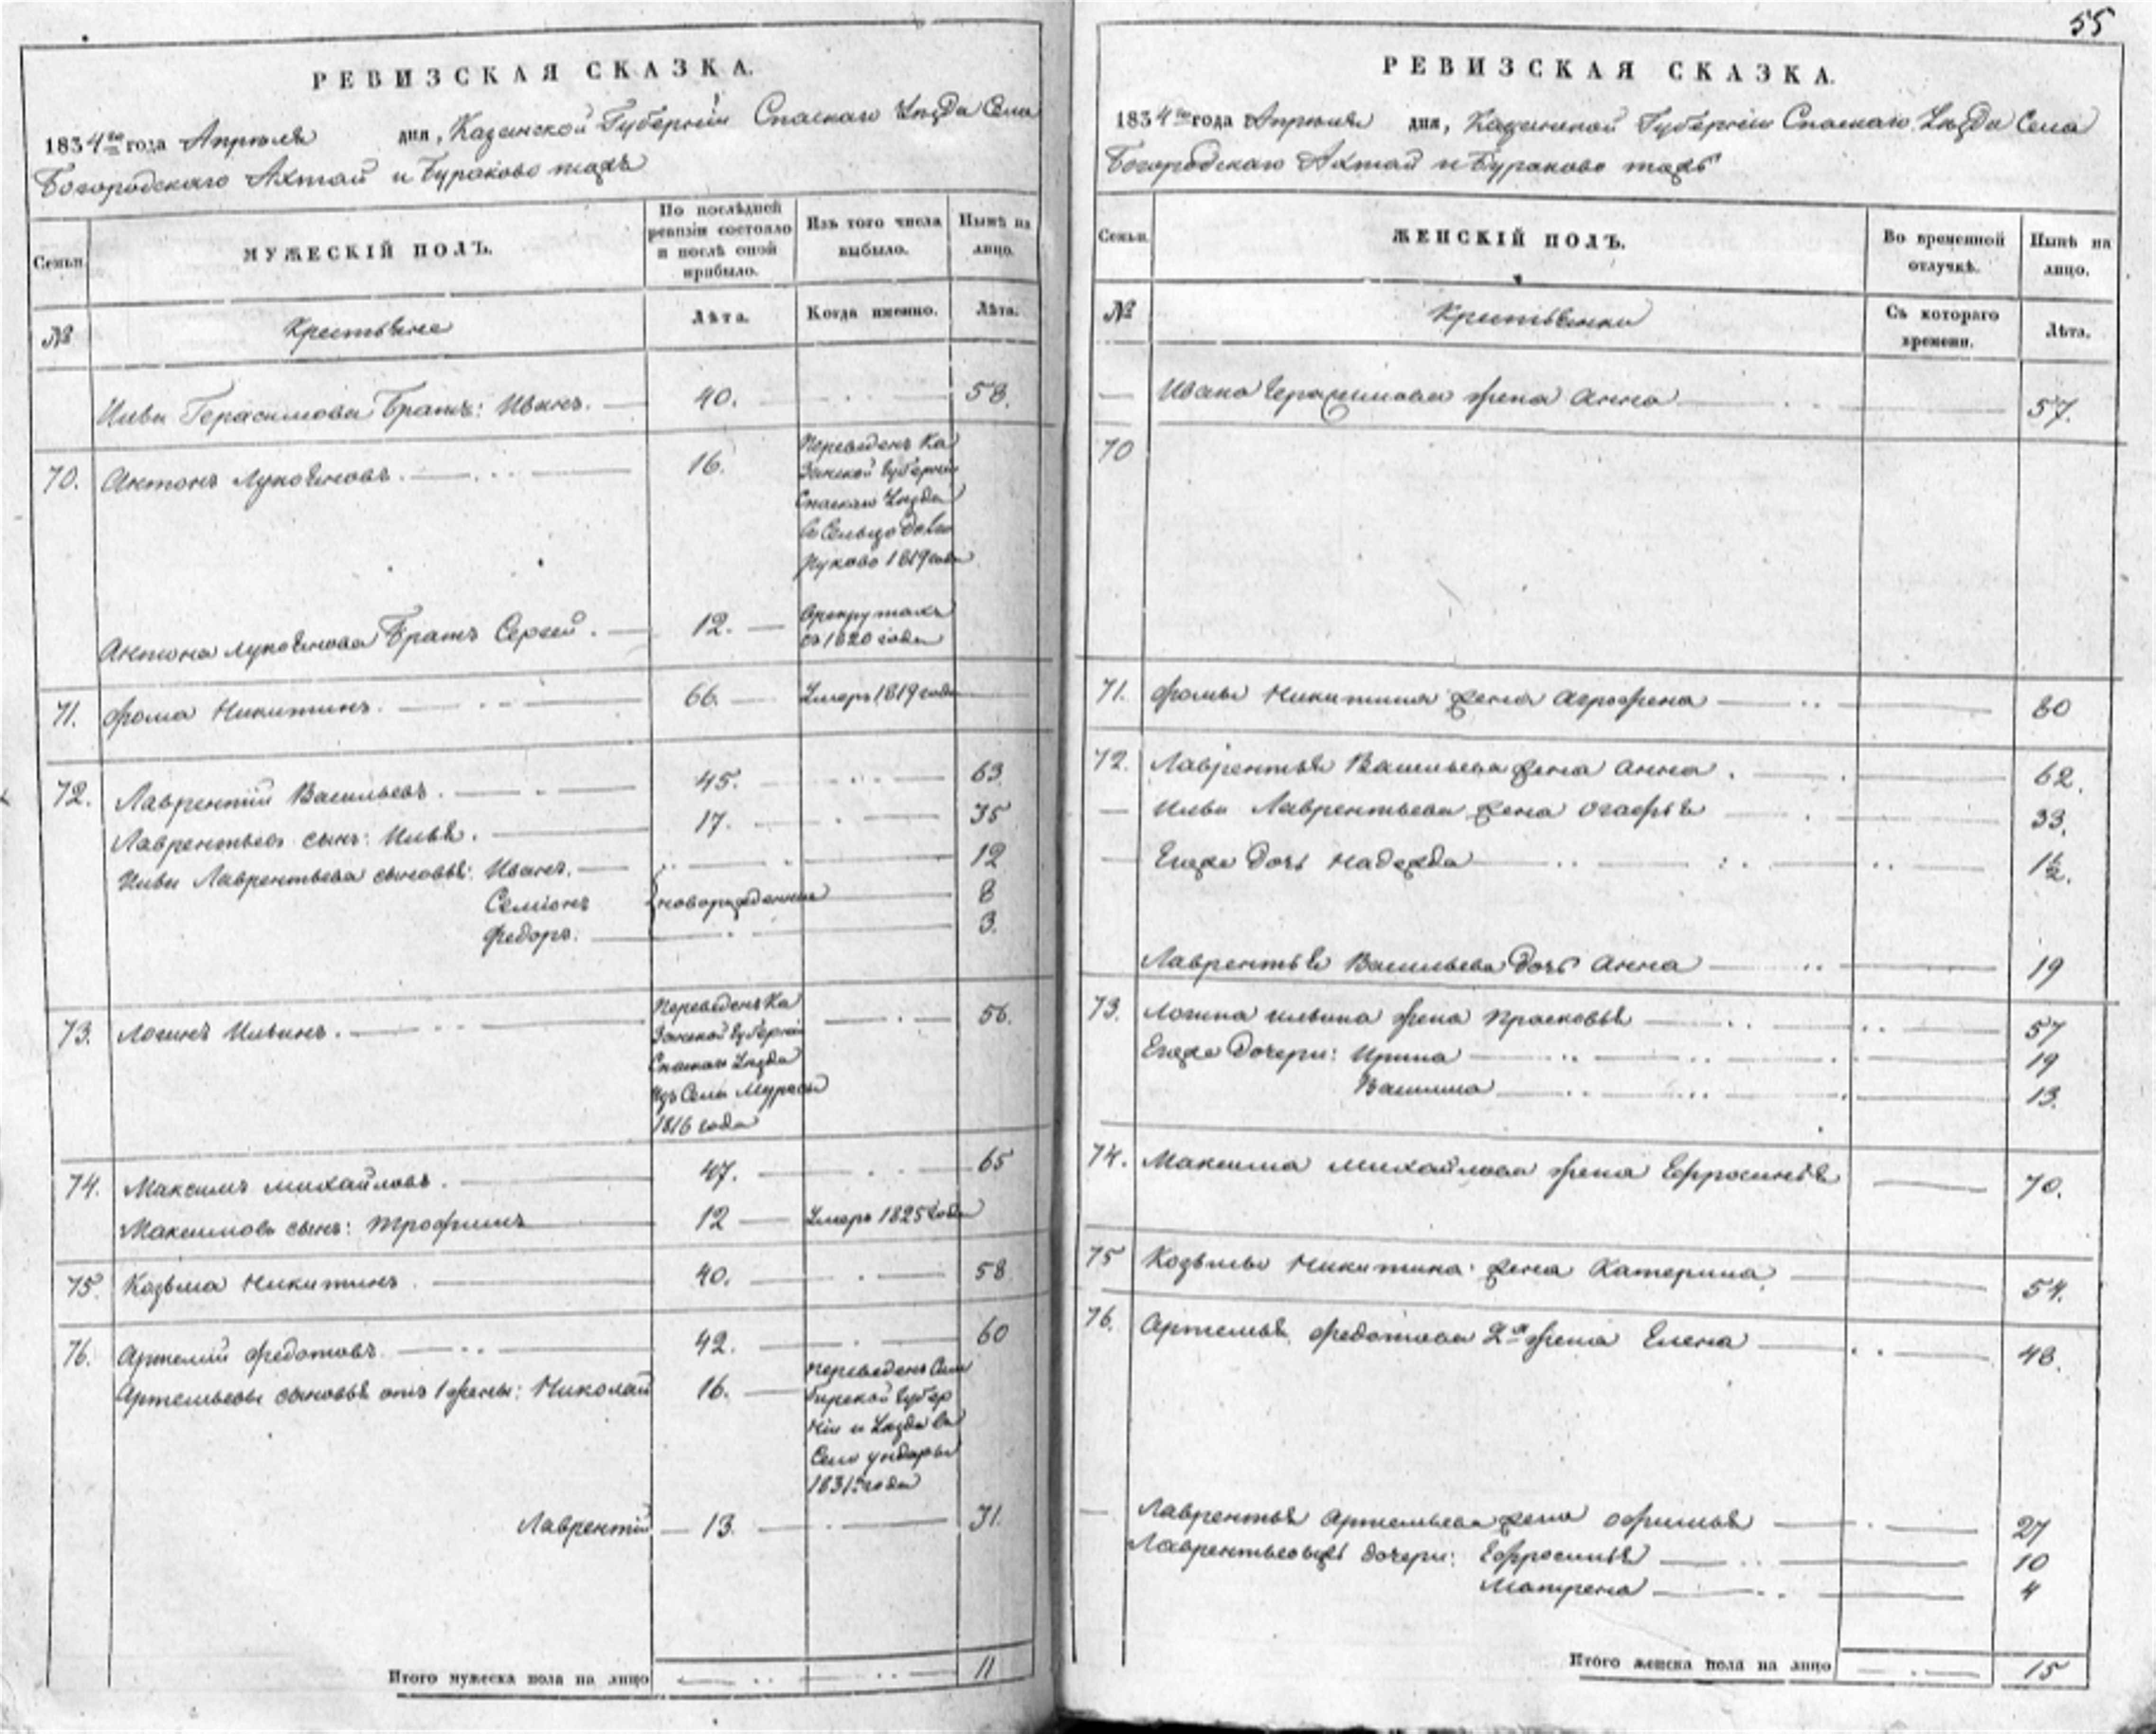 55
РЕВИЗСКАЯ СКАЗКА.
1834го года Апреля дня, Казанской Губернiи Спаскаго Уѣзда Села
Богородскаго Ахтай и Бураково тожъ
Семьи.
МУЖЕСКIЙ ПОЛЪ.
По послѣдней
ревизiи состояло
и послѣ оной
прибыло.
Изъ того числа
выбыло.
Нынѣ на
лицо.
№
Крестьяне
Лѣта.
Когда именно.
Лѣта.
Ильи Герасимова Братъ: Иванъ. 40. 58.
70. Антонъ Лукояновъ. 16. Переведенъ Ка
занской Губернiи
Спаскаго Уѣзда
въ Сельцо Долго
руково 1819 года
Антона Лукоянова Братъ Сергей. 12. Врекрутахъ
съ 1820 года
71. Фома Никитинъ. 66. Умеръ 1819 года
72. Лаврентiй Васильевъ. 45. 63.
Лаврентьевъ сынъ: Илья. 17. 35
Ильи Лаврентьева сыновья: Иванъ. 12
Семiонъ новорожденные 8
Федоръ. 3.
73. Логинъ Ильинъ. Переведенъ Ка
занской Губернiи
Спаскаго Уѣзда
изъ Села Мурасы
1816 года
56.
74. Максимъ Михайловъ. 47. 65
Максимовъ сынъ: Трофимъ 12 Умеръ 1825 года
75. Козьма Никитинъ. 40. 58
76. Артемiй Федотовъ. 42. 60
Артемьевы сыновья отъ 1 жены: Николай 16. Переведенъ Сим
бирской Губер
нiи и Уѣзда въ
Село Ундоры
1831 года
Лаврентiй 13. 31.
Итого мужеска пола на лицо 11
РЕВИЗСКАЯ СКАЗКА.
1834го года Апреля дня, Казанской Губернiи Спаскаго Уѣзда Села
Богородскаго Ахтай и Бураково тожъ
Семьи.
ЖЕНСКIЙ ПОЛЪ.
Во временной
отлучкѣ.
Нынѣ на
лицо.
№
Крестьянки
Съ котораго
времени.
Лѣта.
Ивана Герасимова жена Анна 57.
70
71. Фомы Никитина жена Агрофена 80
72. Лаврентья Васильева жена Анна. 62.
Ильи Лаврентьева жена Огафья 33.
Егоже дочь Надежда 1½.
Лаврентья Васильева дочь Анна 19
73. Логина Ильина жена Прасковья 57
Егоже дочери: Ирина 19
Василиса 13.
74. Максима Михайлова жена Ефросинья 70.
75 Козьмы Никитина жена Катерина 54.
76. Артемья Федотова 2я жена Елена 48.
Лаврентья Артемьева жена Офимья 27
Лаврентьевы дочери: Ефросинья 10
Матрена 4
Итого женска пола на лицо 15